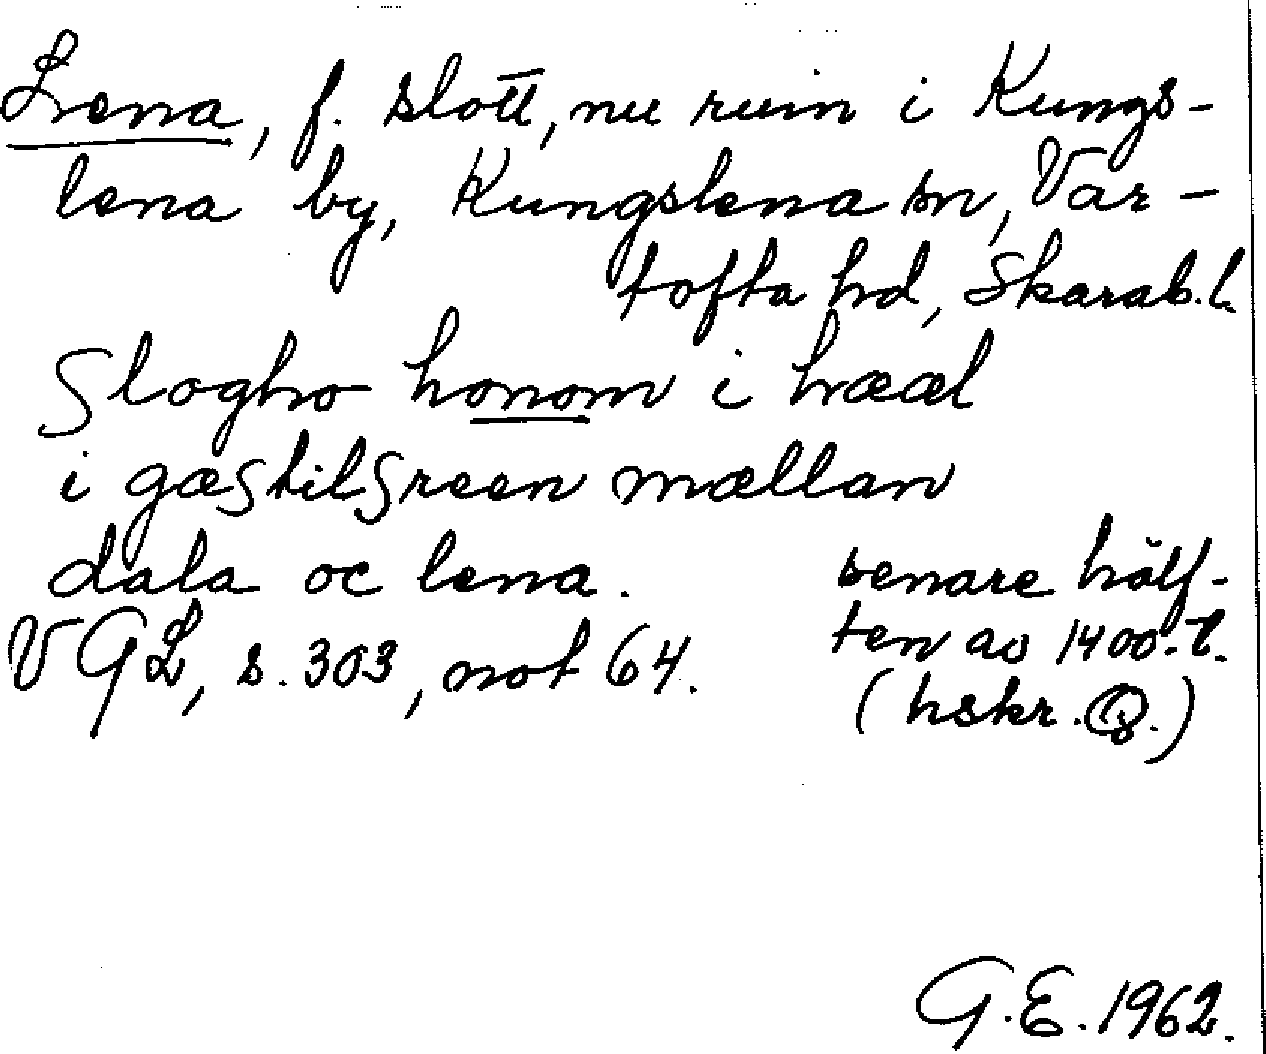 Lena, f. slott, nu ruin i Kungs-
lena by, Kungslena sn, Var-
tofta hd, Skarab. l.
Slogho honom i hææl
i gæstilsreen mællan
dala oc lena.
VGL, s. 303, not 64.
senare hälf-
ten av 1400-t.
(hskr. Q.)
G.E. 1962.